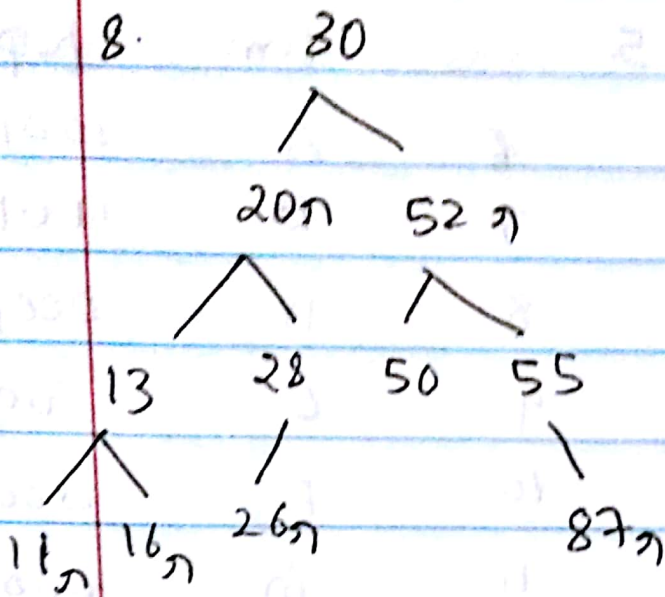 8. 30
20r 52r
13 28 50 55
11r 16r 26r 87r